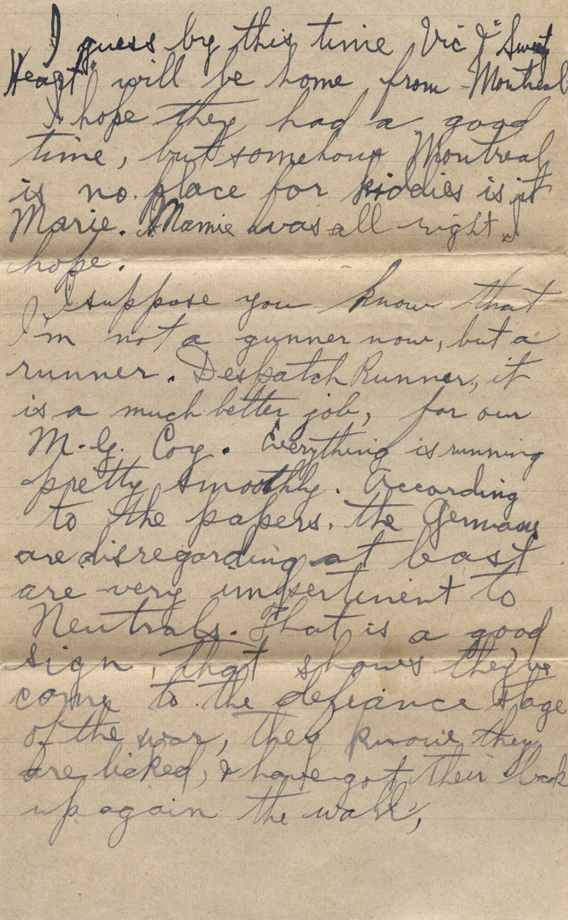 I guess by this time Vic & "Sweet
Heart" will be home from Montreal
I hope they had a good
time, but somehow Montreal
is no place for kiddies is it
Marie. Mamie was all right I
hope.
I suppose you know that
I'm not a gunner now, but a
runner. Despatch Runner, it
is a much better job, for our
M.G. Coy. Everything is running
pretty smoothly. According
to the papers, the Germans
are disregarding at least
are very impertinent to
Neutrals. That is a good
sign, that shows they've
come to the defiance stage
of the war, they know they
are licked, & have got their back
up again the wall,